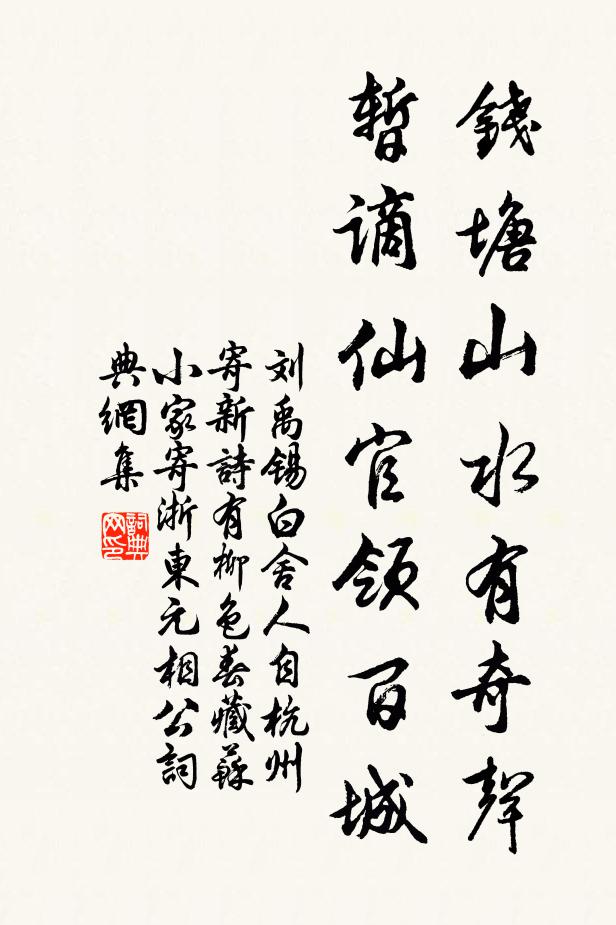 錢塘山水有奇聲
暫謫仙官領百城
刘禹锡白舍人自杭州
寄新詩有柳色春藏蘇
小家寄浙東元相公詞
典網集
詞典网印